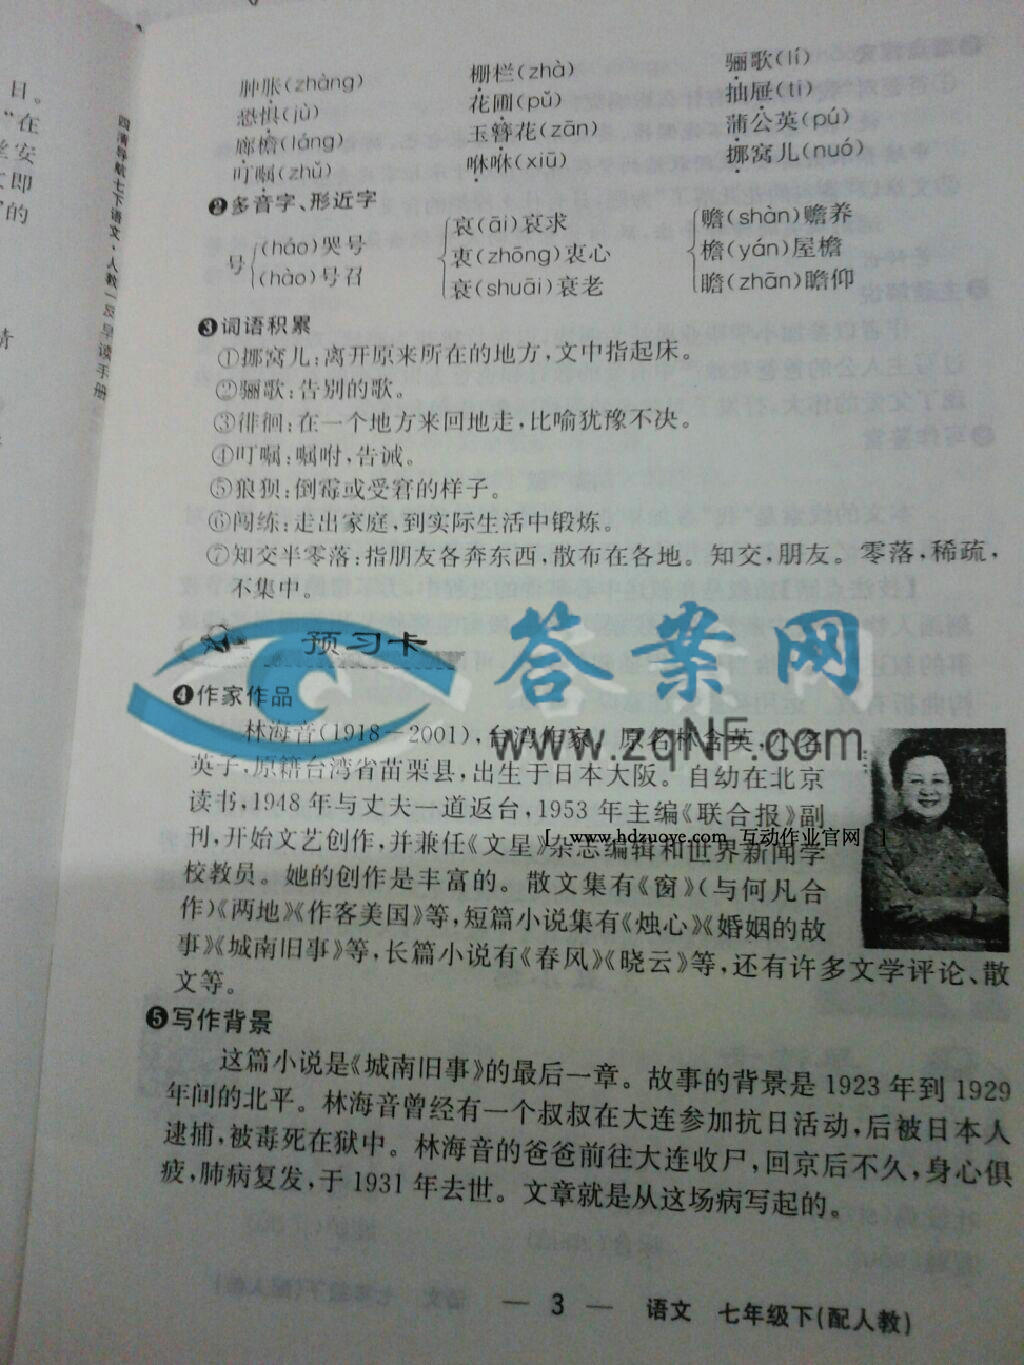 日。
"在
安
即
的
四清导航七下语文·人教 早读手册
肿胀(zhàng) 栅栏(zhà) 骊歌(lí)
恐惧(jù) 花圃(pǔ) 抽屉(ti)
廊檐(láng) 玉簪花(zān) 蒲公英(pú)
叮嘱(zhǔ) 咻咻(xiū) 挪窝儿(nuó)
❷多音字、形近字
号
(háo)哭号
(hào)号召
哀(āi)哀求
衷(zhōng)衷心
衰(shuāi)衰老
赡(shàn)赡养
檐(yán)屋檐
瞻(zhān)瞻仰
❸词语积累
①挪窝儿:离开原来所在的地方,文中指起床。
②骊歌:告别的歌。
③徘徊:在一个地方来回地走,比喻犹豫不决。
④叮嘱:嘱咐,告诫。
⑤狼狈:倒霉或受窘的样子。
⑥闯练:走出家庭,到实际生活中锻炼。
⑦知交半零落:指朋友各奔东西,散布在各地。知交,朋友。零落,稀疏,
不集中。
预习卡
答案网
www.zqNF.com
❹作家作品
林海音(1918-2001),台湾作家 原名林含英,小名
英子,原籍台湾省苗栗县,出生于日本大阪。自幼在北京
读书,1948年与丈夫一道返台,1953年主编《联合报》副
刊,开始文艺创作,并兼任《文星》杂志编辑和世界新闻学
[ www.hdzuoye.com 互动作业官网 ]
校教员。她的创作是丰富的。散文集有《窗》(与何凡合
作)《两地》《作客美国》等,短篇小说集有《烛心》《婚姻的故
事》《城南旧事》等,长篇小说有《春风》《晓云》等,还有许多文学评论、散
文等。
❺写作背景
这篇小说是《城南旧事》的最后一章。故事的背景是1923年到1929
年间的北平。林海音曾经有一个叔叔在大连参加抗日活动,后被日本人
逮捕,被毒死在狱中。林海音的爸爸前往大连收尸,回京后不久,身心俱
疲,肺病复发,于1931年去世。文章就是从这场病写起的。
— 3 — 语文 七年级下(配人教)